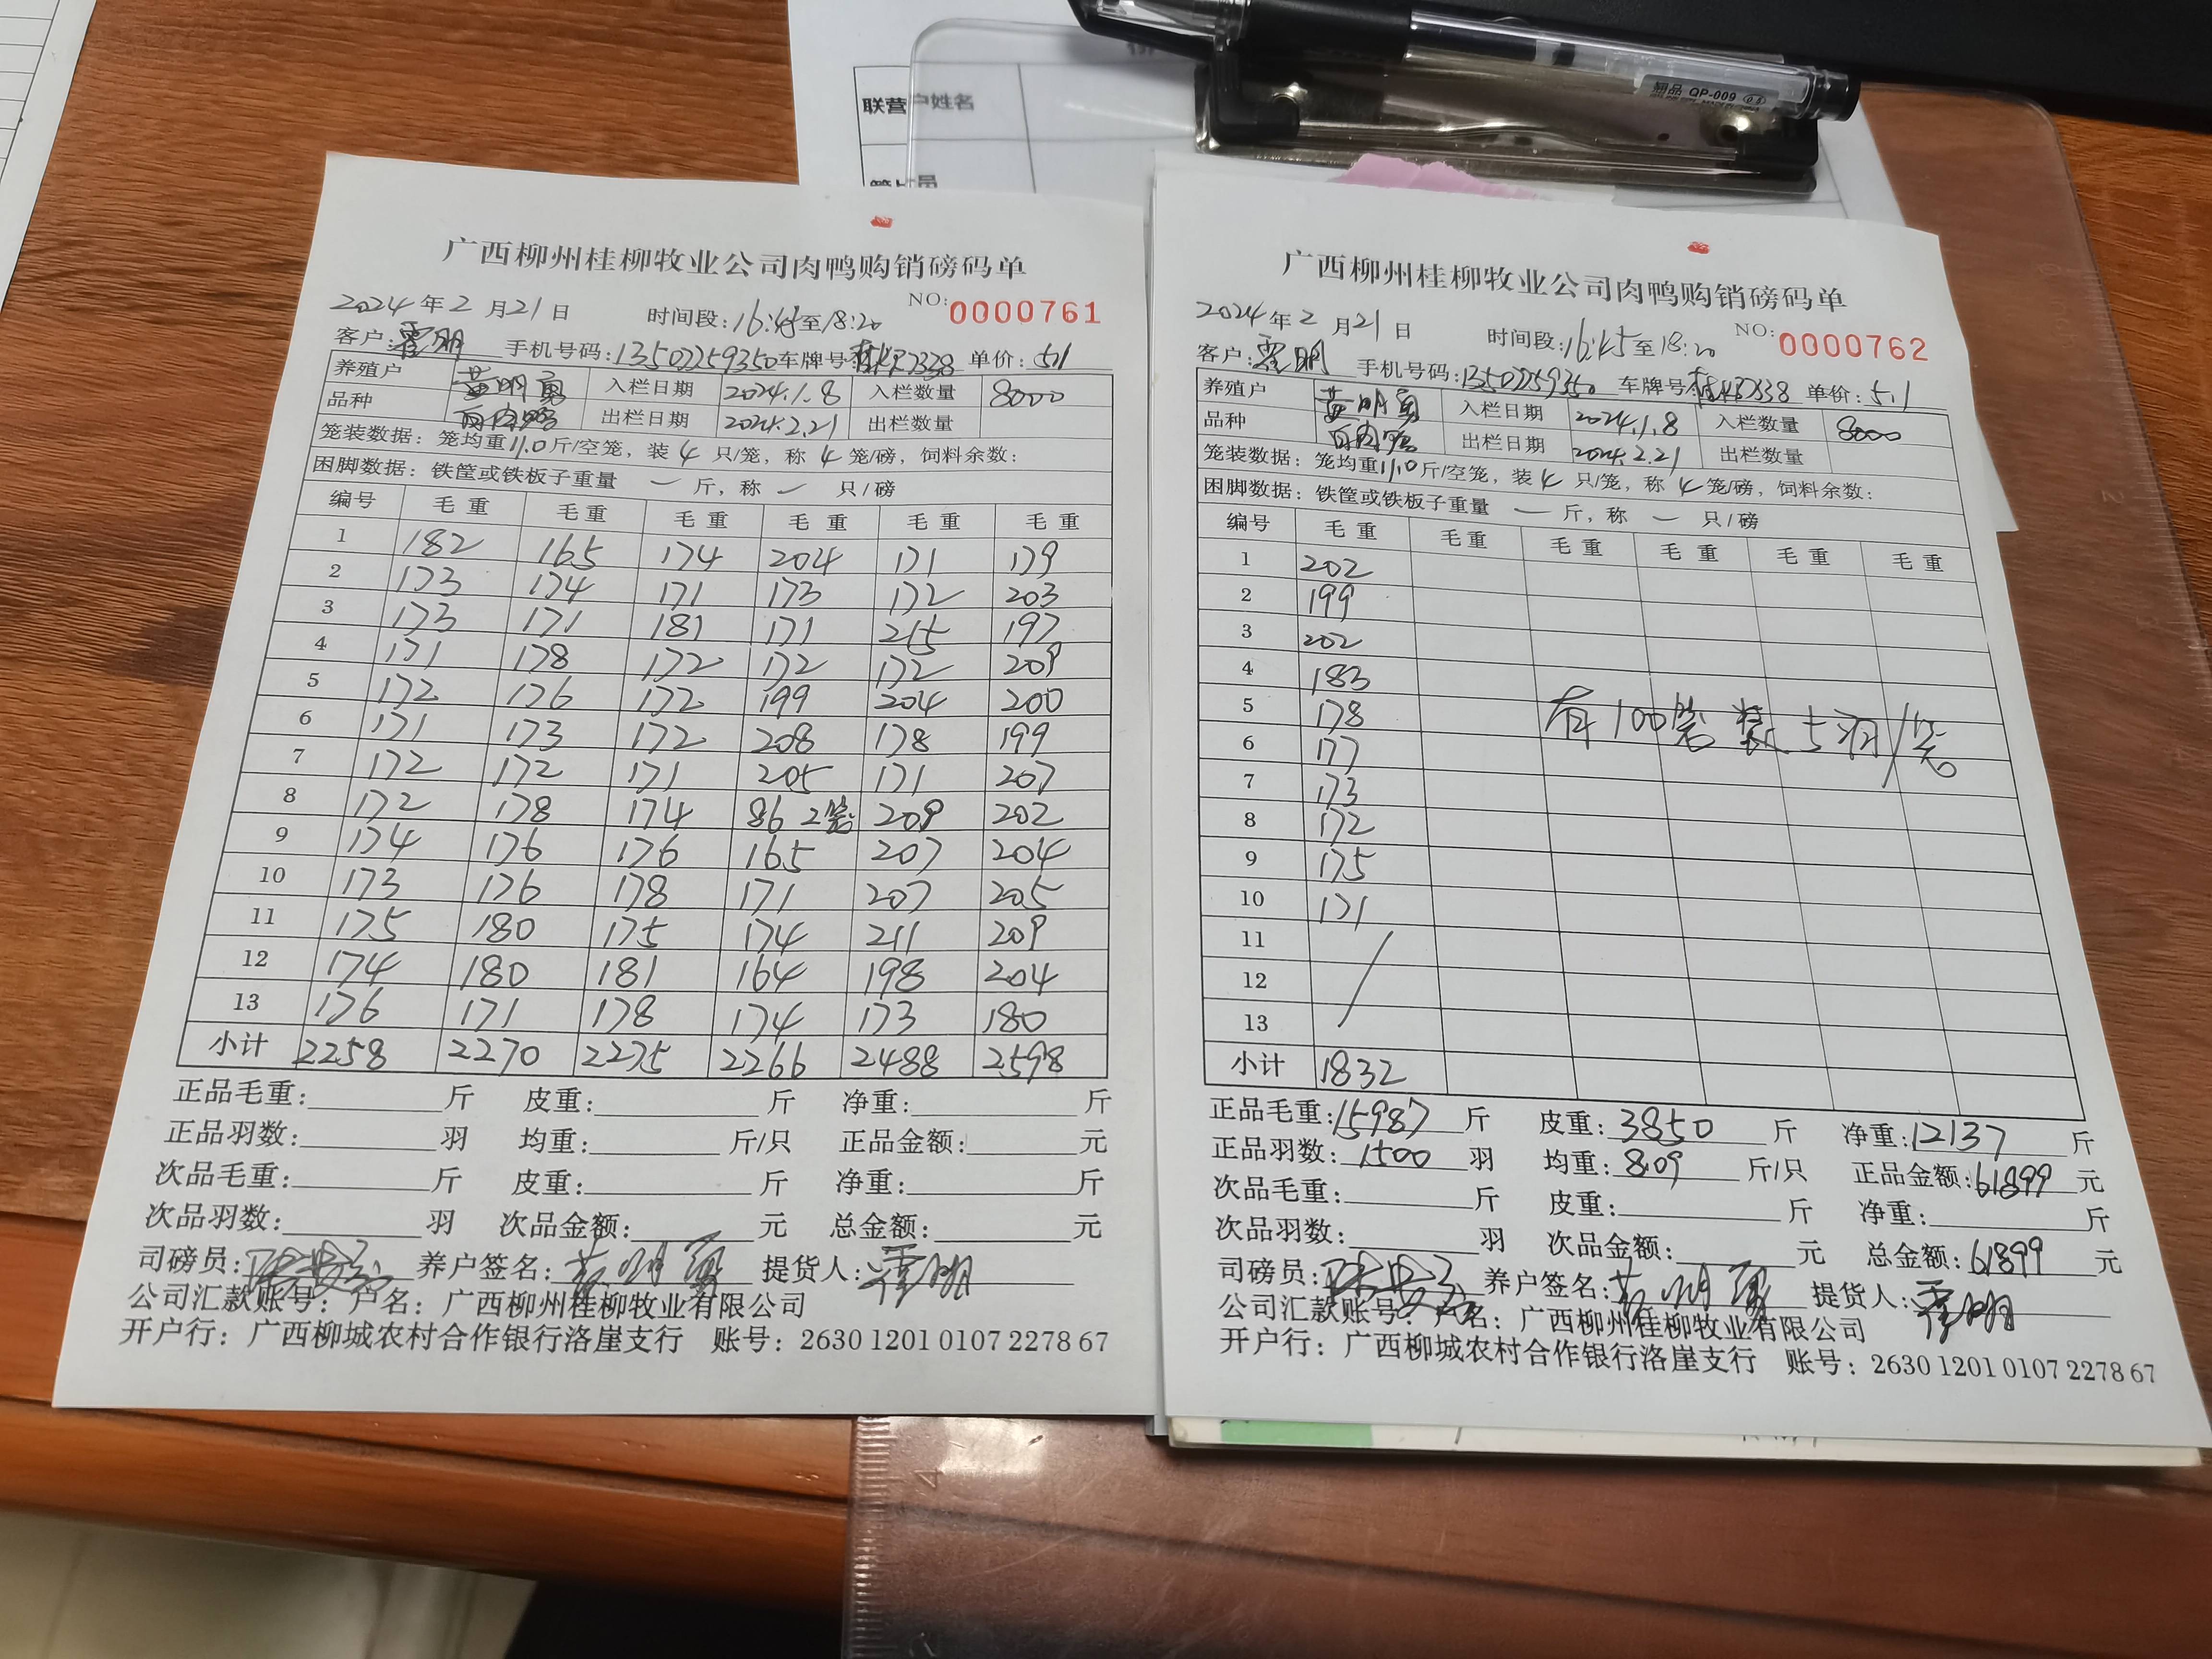 联营户姓名
翔品 QP-009
广西柳州桂柳牧业公司肉鸭购销磅码单
2024年2月21日 时间段:16:45至18:20 NO:0000761
客户:霍明 手机号码:13507259350 车牌号: 单价:5.1
养殖户 黄明勇 入栏日期 2024.1.8 入栏数量 8000
品种 白肉鸭 出栏日期 2024.2.21 出栏数量
笼装数据：笼均重11.0斤/空笼，装4只/笼，称4笼/磅，饲料余数：
困脚数据：铁筐或铁板子重量 一 斤，称 一 只/磅
编号 毛重 毛重 毛重 毛重 毛重 毛重
1 182 165 174 204 171 179
2 173 174 171 173 172 203
3 173 171 181 171 215 197
4 171 178 172 172 172 209
5 172 176 172 199 204 200
6 171 173 172 208 178 199
7 172 172 171 205 171 207
8 172 178 174 86 2笼 209 202
9 174 176 176 165 207 204
10 173 176 178 171 207 205
11 175 180 175 174 211 209
12 174 180 181 164 198 204
13 176 171 178 174 173 180
小计 2258 2270 2275 2266 2488 2598
正品毛重: 斤 皮重: 斤 净重: 斤
正品羽数: 羽 均重: 斤/只 正品金额: 元
次品毛重: 斤 皮重: 斤 净重: 斤
次品羽数: 羽 次品金额: 元 总金额: 元
司磅员: 养户签名:黄明勇 提货人:霍明
公司汇款账号：户名：广西柳州桂柳牧业有限公司
开户行：广西柳城农村合作银行洛崖支行 账号：2630 1201 0107 2278 67
广西柳州桂柳牧业公司肉鸭购销磅码单
2024年2月21日 时间段:16:45至18:20 NO:0000762
客户:霍明 手机号码:13507259350 车牌号: 单价:5.1
养殖户 黄明勇 入栏日期 2024.1.8 入栏数量 8000
品种 白肉鸭 出栏日期 2024.2.21 出栏数量
笼装数据：笼均重11.0斤/空笼，装4只/笼，称4笼/磅，饲料余数：
困脚数据：铁筐或铁板子重量 一 斤，称 一 只/磅
编号 毛重 毛重 毛重 毛重 毛重 毛重
1 202
2 199
3 202
4 183
5 178
有100笼装5羽/笼
6 177
7 173
8 172
9 175
10 171
11
12
13
小计 1832
正品毛重:15987斤 皮重:3850斤 净重:12137斤
正品羽数:1500羽 均重:8.09斤/只 正品金额:61899元
次品毛重: 斤 皮重: 斤 净重: 斤
次品羽数: 羽 次品金额: 元 总金额:61899元
司磅员: 养户签名:黄明勇 提货人:霍明
公司汇款账号：户名：广西柳州桂柳牧业有限公司
开户行：广西柳城农村合作银行洛崖支行 账号：2630 1201 0107 2278 67